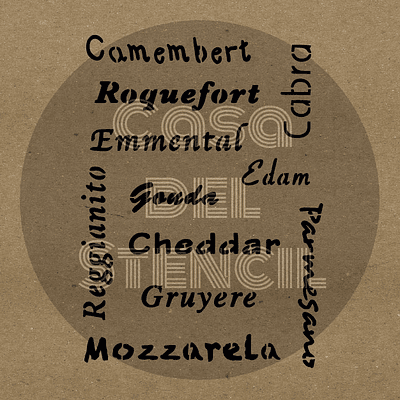 Camembert
Cabra
Roquefort
Casa
Emmental
Edam
Gouda
DEL
Reggianito
Cheddar
Parmesano
STENCIL
Gruyere
Mozzarela